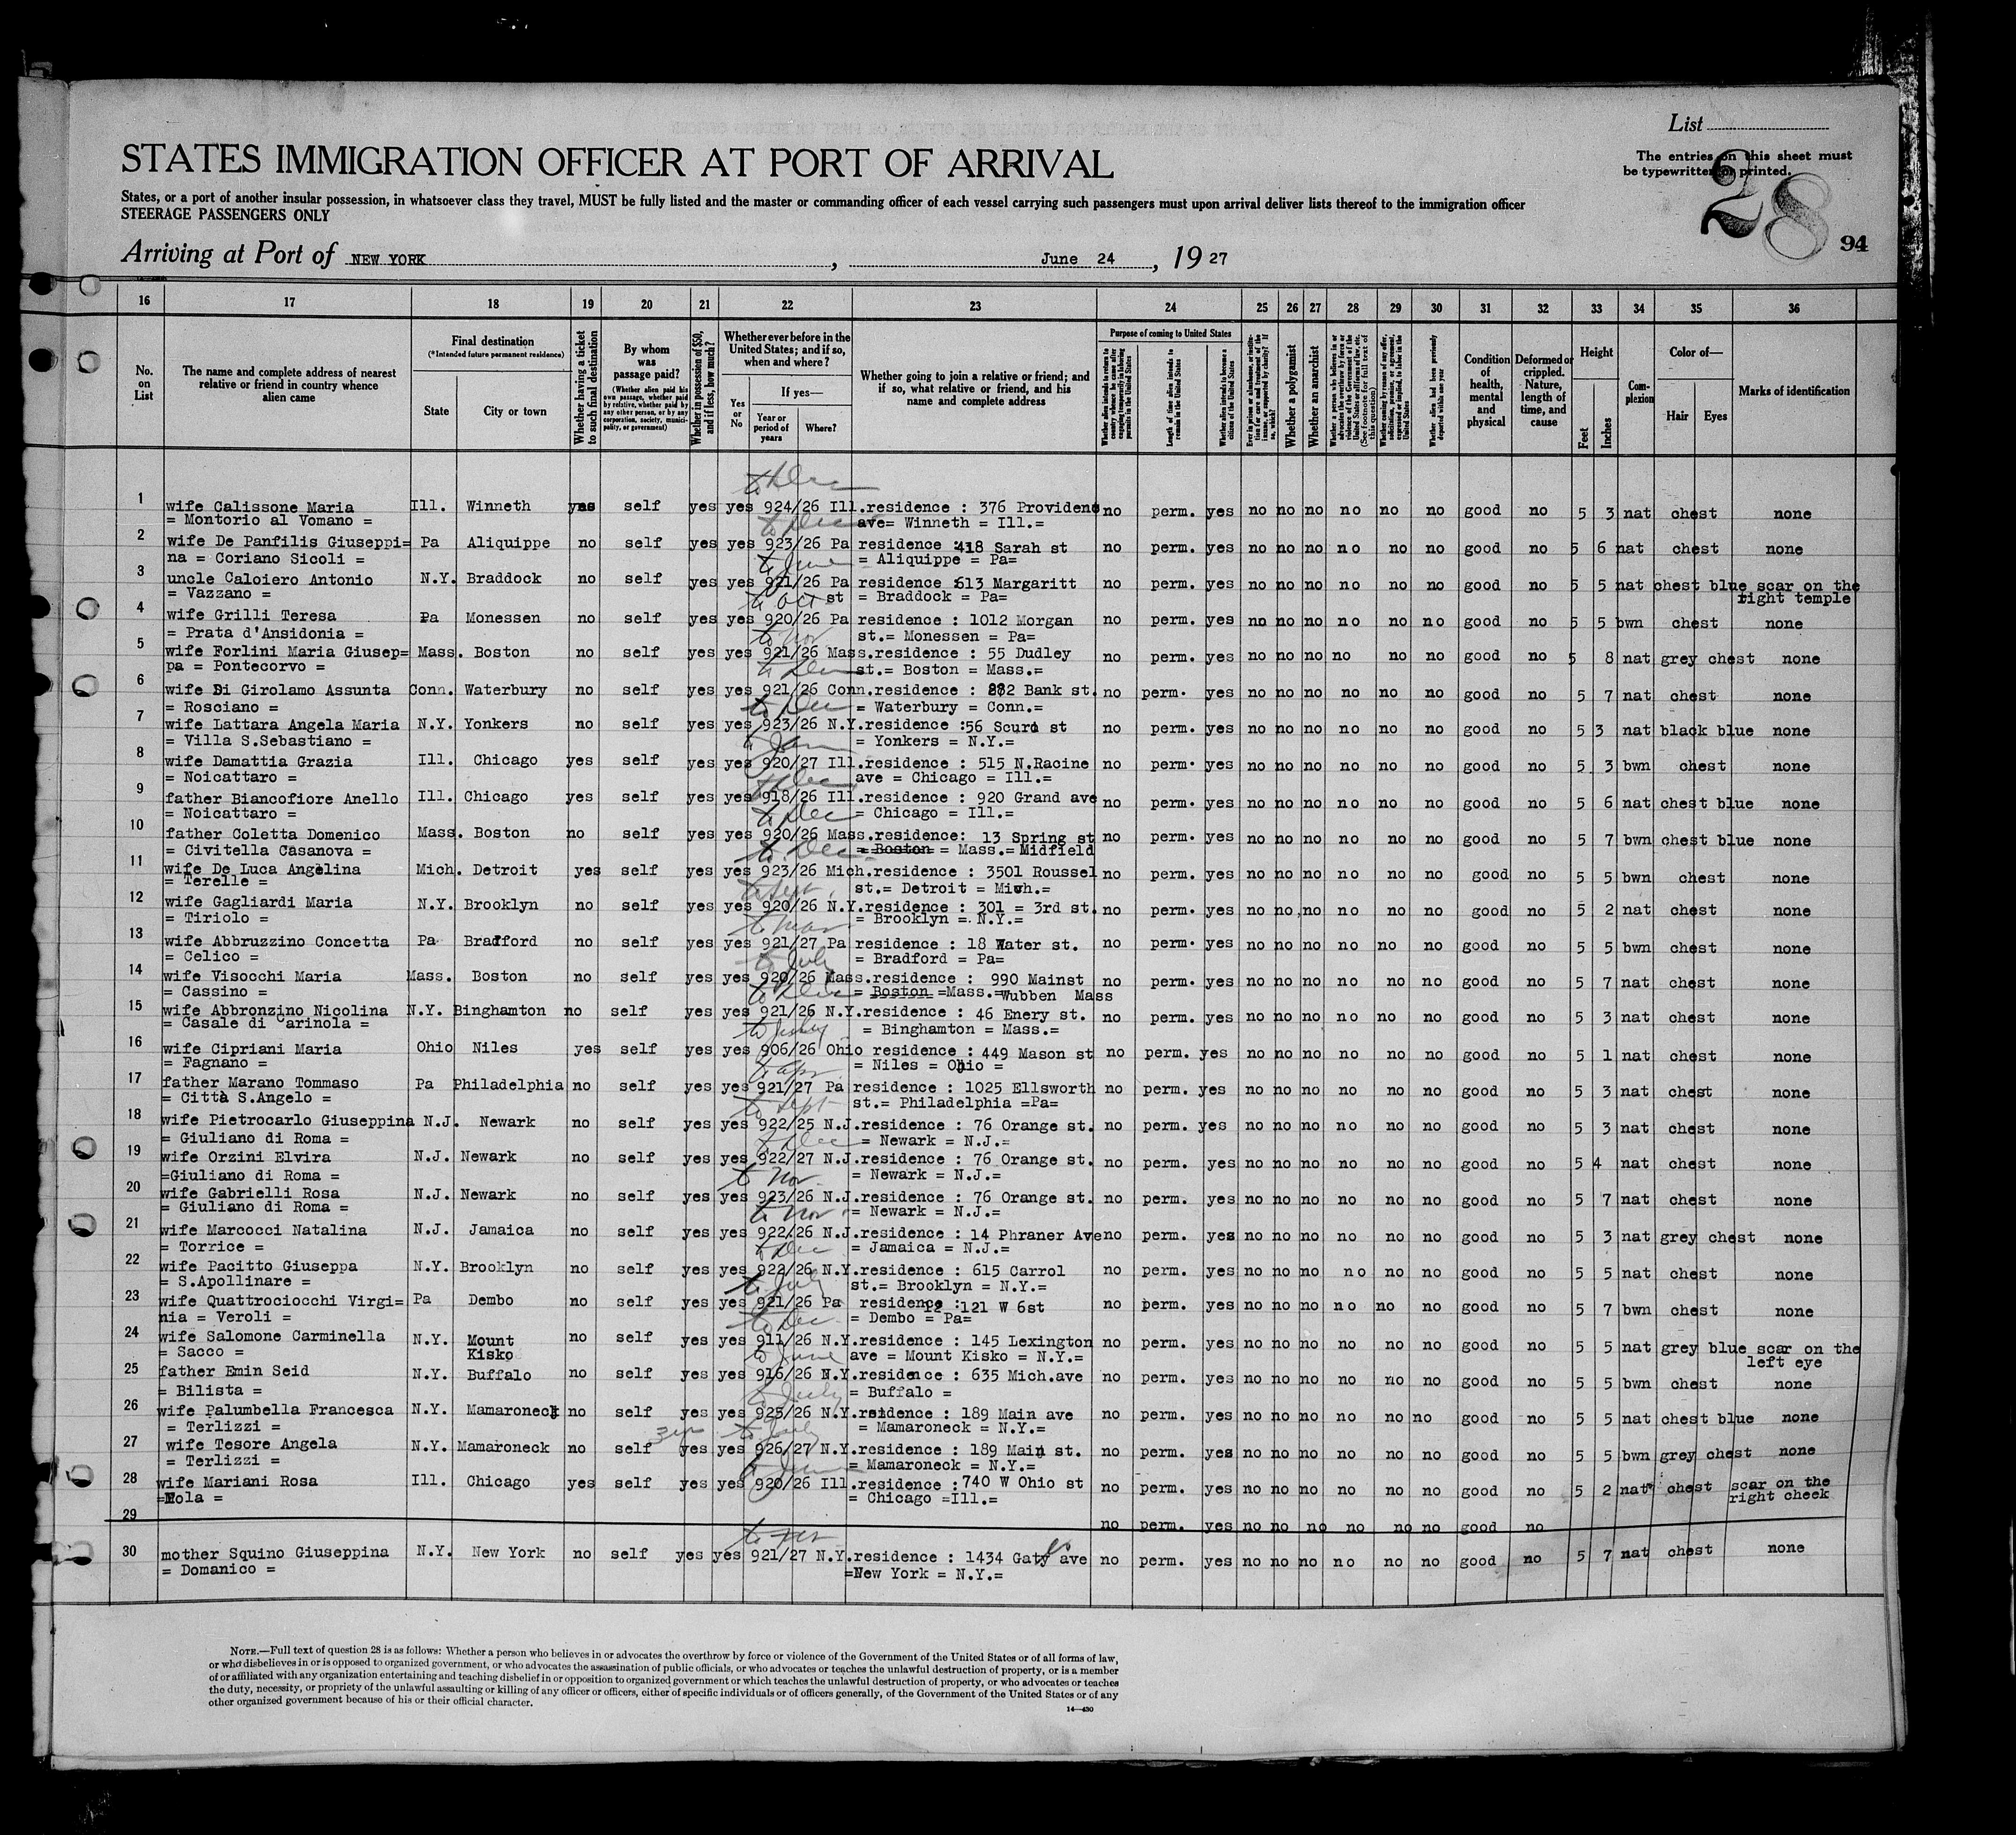 List
The entries on this sheet must
be typewritten or printed.
28
94
STATES IMMIGRATION OFFICER AT PORT OF ARRIVAL
States, or a port of another insular possession, in whatsoever class they travel, MUST be fully listed and the master or commanding officer of each vessel carrying such passengers must upon arrival deliver lists thereof to the immigration officer
STEERAGE PASSENGERS ONLY
Arriving at Port of NEW YORK , June 24 , 19 27
16 17 18 19 20 21 22 23 24 25 26 27 28 29 30 31 32 33 34 35 36
No. on List
The name and complete address of nearest relative or friend in country whence alien came
Final destination
(*Intended future permanent residence)
State
City or town
Whether having a ticket to such final destination
By whom was passage paid?
(Whether alien paid his own passage, whether paid by relative, whether paid by any other person, or by any corporation, society, municipality, or government)
Whether in possession of $50, and if less, how much?
Whether ever before in the United States; and if so, when and where?
Yes or No
If yes—
Year or period of years
Where?
Whether going to join a relative or friend; and if so, what relative or friend, and his name and complete address
Purpose of coming to United States
Length of time alien intends to remain in the United States
Whether alien intends to become a citizen of the United States
Whether a polygamist
Whether an anarchist
Condition of health, mental and physical
Deformed or crippled. Nature, length of time, and cause
Height
Feet
Inches
Complexion
Color of—
Hair
Eyes
Marks of identification
1 wife Calissone Maria Ill. Winneth yes self yes yes 924/26 Ill. residence : 376 Providenc no perm. yes no no no no no no good no 5 3 nat chest none
= Montorio al Vomano = ave= Winneth = Ill.=
2 wife De Panfilis Giuseppi= Pa Aliquippe no self yes yes 923/26 Pa residence : 418 Sarah st no perm. yes no no no no no no good no 5 6 nat chest none
na = Coriano Sicoli = = Aliquippe = Pa=
3 uncle Caloiero Antonio N.Y. Braddock no self yes yes 921/26 Pa residence 613 Margaritt no perm. yes no no no no no no good no 5 5 nat chest blue scar on the
= Vazzano = st = Braddock = Pa= right temple
4 wife Grilli Teresa Pa Monessen no self yes yes 920/26 Pa residence : 1012 Morgan no perm. yes no no no no no no good no 5 5 bwn chest none
= Prata d'Ansidonia = st.= Monessen = Pa=
5 wife Forlini Maria Giusep= Mass. Boston no self yes yes 921/26 Mass. residence : 55 Dudley no perm. yes no no no no no no good no 5 8 nat grey chest none
pa = Pontecorvo = st.= Boston = Mass.=
6 wife Di Girolamo Assunta Conn. Waterbury no self yes yes 921/26 Conn. residence : Bank st. no perm. yes no no no no no no good no 5 7 nat chest none
= Rosciano = = Waterbury = Conn.=
7 wife Lattara Angela Maria N.Y. Yonkers no self yes yes 923/26 N.Y. residence :56 st no perm. yes no no no no no no good no 5 3 nat black blue none
= Villa S.Sebastiano = = Yonkers = N.Y.=
8 wife Damattia Grazia Ill. Chicago yes self yes yes 920/27 Ill. residence : 515 N.Racine no perm. yes no no no no no no good no 5 3 bwn chest none
= Noicattaro = ave = Chicago = Ill.=
9 father Biancofiore Anello Ill. Chicago yes self yes yes 918/26 Ill. residence : 920 Grand ave no perm. yes no no no no no no good no 5 6 nat chest blue none
= Noicattaro = = Chicago = Ill.=
10 father Coletta Domenico Mass. Boston no self yes yes 920/26 Mass. residence: 13 Spring st no perm. yes no no no no no no good no 5 7 bwn chest blue none
= Civitella Casanova = = Boston = Mass.= Midfield
11 wife De Luca Angelina Mich. Detroit yes self yes yes 923/26 Mich. residence : 3501 Roussel no perm. yes no no no no no no good no 5 5 bwn chest none
= Terelle = st.= Detroit = Mich.=
12 wife Gagliardi Maria N.Y. Brooklyn no self yes yes 920/26 N.Y. residence : 301 = 3rd st. no perm. yes no no no no no no good no 5 2 nat chest none
= Tiriolo = = Brooklyn = N.Y.=
13 wife Abbruzzino Concetta Pa Bradford no self yes yes 921/27 Pa residence : 18 Water st. no perm. yes no no no no no no good no 5 5 bwn chest none
= Celico = = Bradford = Pa=
14 wife Visocchi Maria Mass. Boston no self yes yes 920/26 Mass. residence : 990 Mainst no perm. yes no no no no no no good no 5 7 nat chest none
= Cassino = = Boston =Mass.=Wubben Mass
15 wife Abbronzino Nicolina N.Y. Binghamton no self yes yes 921/26 N.Y. residence : 46 Enery st. no perm. yes no no no no no no good no 5 3 nat chest none
= Casale di Carinola = = Binghamton = Mass.=
16 wife Cipriani Maria Ohio Niles yes self yes yes 906/26 Ohio residence : 449 Mason st no perm. yes no no no no no no good no 5 1 nat chest none
= Fagnano = = Niles = Ohio =
17 father Marano Tommaso Pa Philadelphia no self yes yes 921/27 Pa residence : 1025 Ellsworth no perm. yes no no no no no no good no 5 3 nat chest none
= Città S.Angelo = st.= Philadelphia =Pa=
18 wife Pietrocarlo Giuseppina N.J. Newark no self yes yes 922/25 N.J. residence : 76 Orange st. no perm. yes no no no no no no good no 5 3 nat chest none
= Giuliano di Roma = = Newark = N.J.=
19 wife Orzini Elvira N.J. Newark no self yes yes 922/27 N.J. residence : 76 Orange st. no perm. yes no no no no no no good no 5 4 nat chest none
=Giuliano di Roma = = Newark = N.J.=
20 wife Gabrielli Rosa N.J. Newark no self yes yes 923/26 N.J. residence : 76 Orange st. no perm. yes no no no no no no good no 5 7 nat chest none
= Giuliano di Roma = = Newark = N.J.=
21 wife Marcocci Natalina N.J. Jamaica no self yes yes 922/26 N.J. residence : 14 Phraner Ave no perm. yes no no no no no no good no 5 3 nat grey chest none
= Torrice = = Jamaica = N.J.=
22 wife Pacitto Giuseppa N.Y. Brooklyn no self yes yes 922/26 N.Y. residence : 615 Carrol no perm. yes no no no no no no good no 5 5 nat chest none
= S.Apollinare = st.= Brooklyn = N.Y.=
23 wife Quattrociocchi Virgi= Pa Dembo no self yes yes 921/26 Pa residence : 121 W 6st no perm. yes no no no no no no good no 5 7 bwn chest none
nia = Veroli = = Dembo = Pa=
24 wife Salomone Carminella N.Y. Mount Kisko no self yes yes 911/26 N.Y. residence : 145 Lexington no perm. yes no no no no no no good no 5 5 nat grey blue scar on the
= Sacco = ave = Mount Kisko = N.Y.= left eye
25 father Emin Seid N.Y. Buffalo no self yes yes 916/26 N.Y. residence : 635 Mich.ave no perm. yes no no no no no no good no 5 5 bwn chest none
= Bilista = = Buffalo =
26 wife Palumbella Francesca N.Y. Mamaroneck no self yes yes 925/26 N.Y. residence : 189 Main ave no perm. yes no no no no no no good no 5 5 nat chest blue none
= Terlizzi = = Mamaroneck = N.Y.=
27 wife Tesore Angela N.Y. Mamaroneck no self yes yes 926/27 N.Y. residence : 189 Main st. no perm. yes no no no no no no good no 5 5 bwn grey chest none
= Terlizzi = = Mamaroneck = N.Y.=
28 wife Mariani Rosa Ill. Chicago yes self yes yes 920/26 Ill. residence : 740 W Ohio st no perm. yes no no no no no no good no 5 2 nat chest scar on the
=Mola = = Chicago =Ill.= right cheek
29 no perm. yes no no no no no no good no
30 mother Squino Giuseppina N.Y. New York no self yes yes 921/27 N.Y. residence : 1434 Gats ave no perm. yes no no no no no no good no 5 7 nat chest none
= Domanico = =New York = N.Y.=
NOTE.—Full text of question 28 is as follows: Whether a person who believes in or advocates the overthrow by force or violence of the Government of the United States or of all forms of law,
or who disbelieves in or is opposed to organized government, or who advocates the assassination of public officials, or who advocates or teaches the unlawful destruction of property, or is a member
of or affiliated with any organization entertaining and teaching disbelief in or opposition to organized government or which teaches the unlawful destruction of property, or who advocates or teaches
the duty, necessity, or propriety of the unlawful assaulting or killing of any officer or officers, either of specific individuals or of officers generally, of the Government of the United States or of any
other organized government because of his or their official character.
14—430